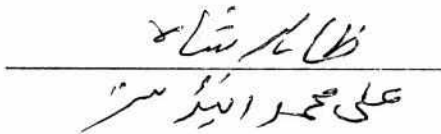 ظاہر شاہ
علی محمد اینڈ سنز